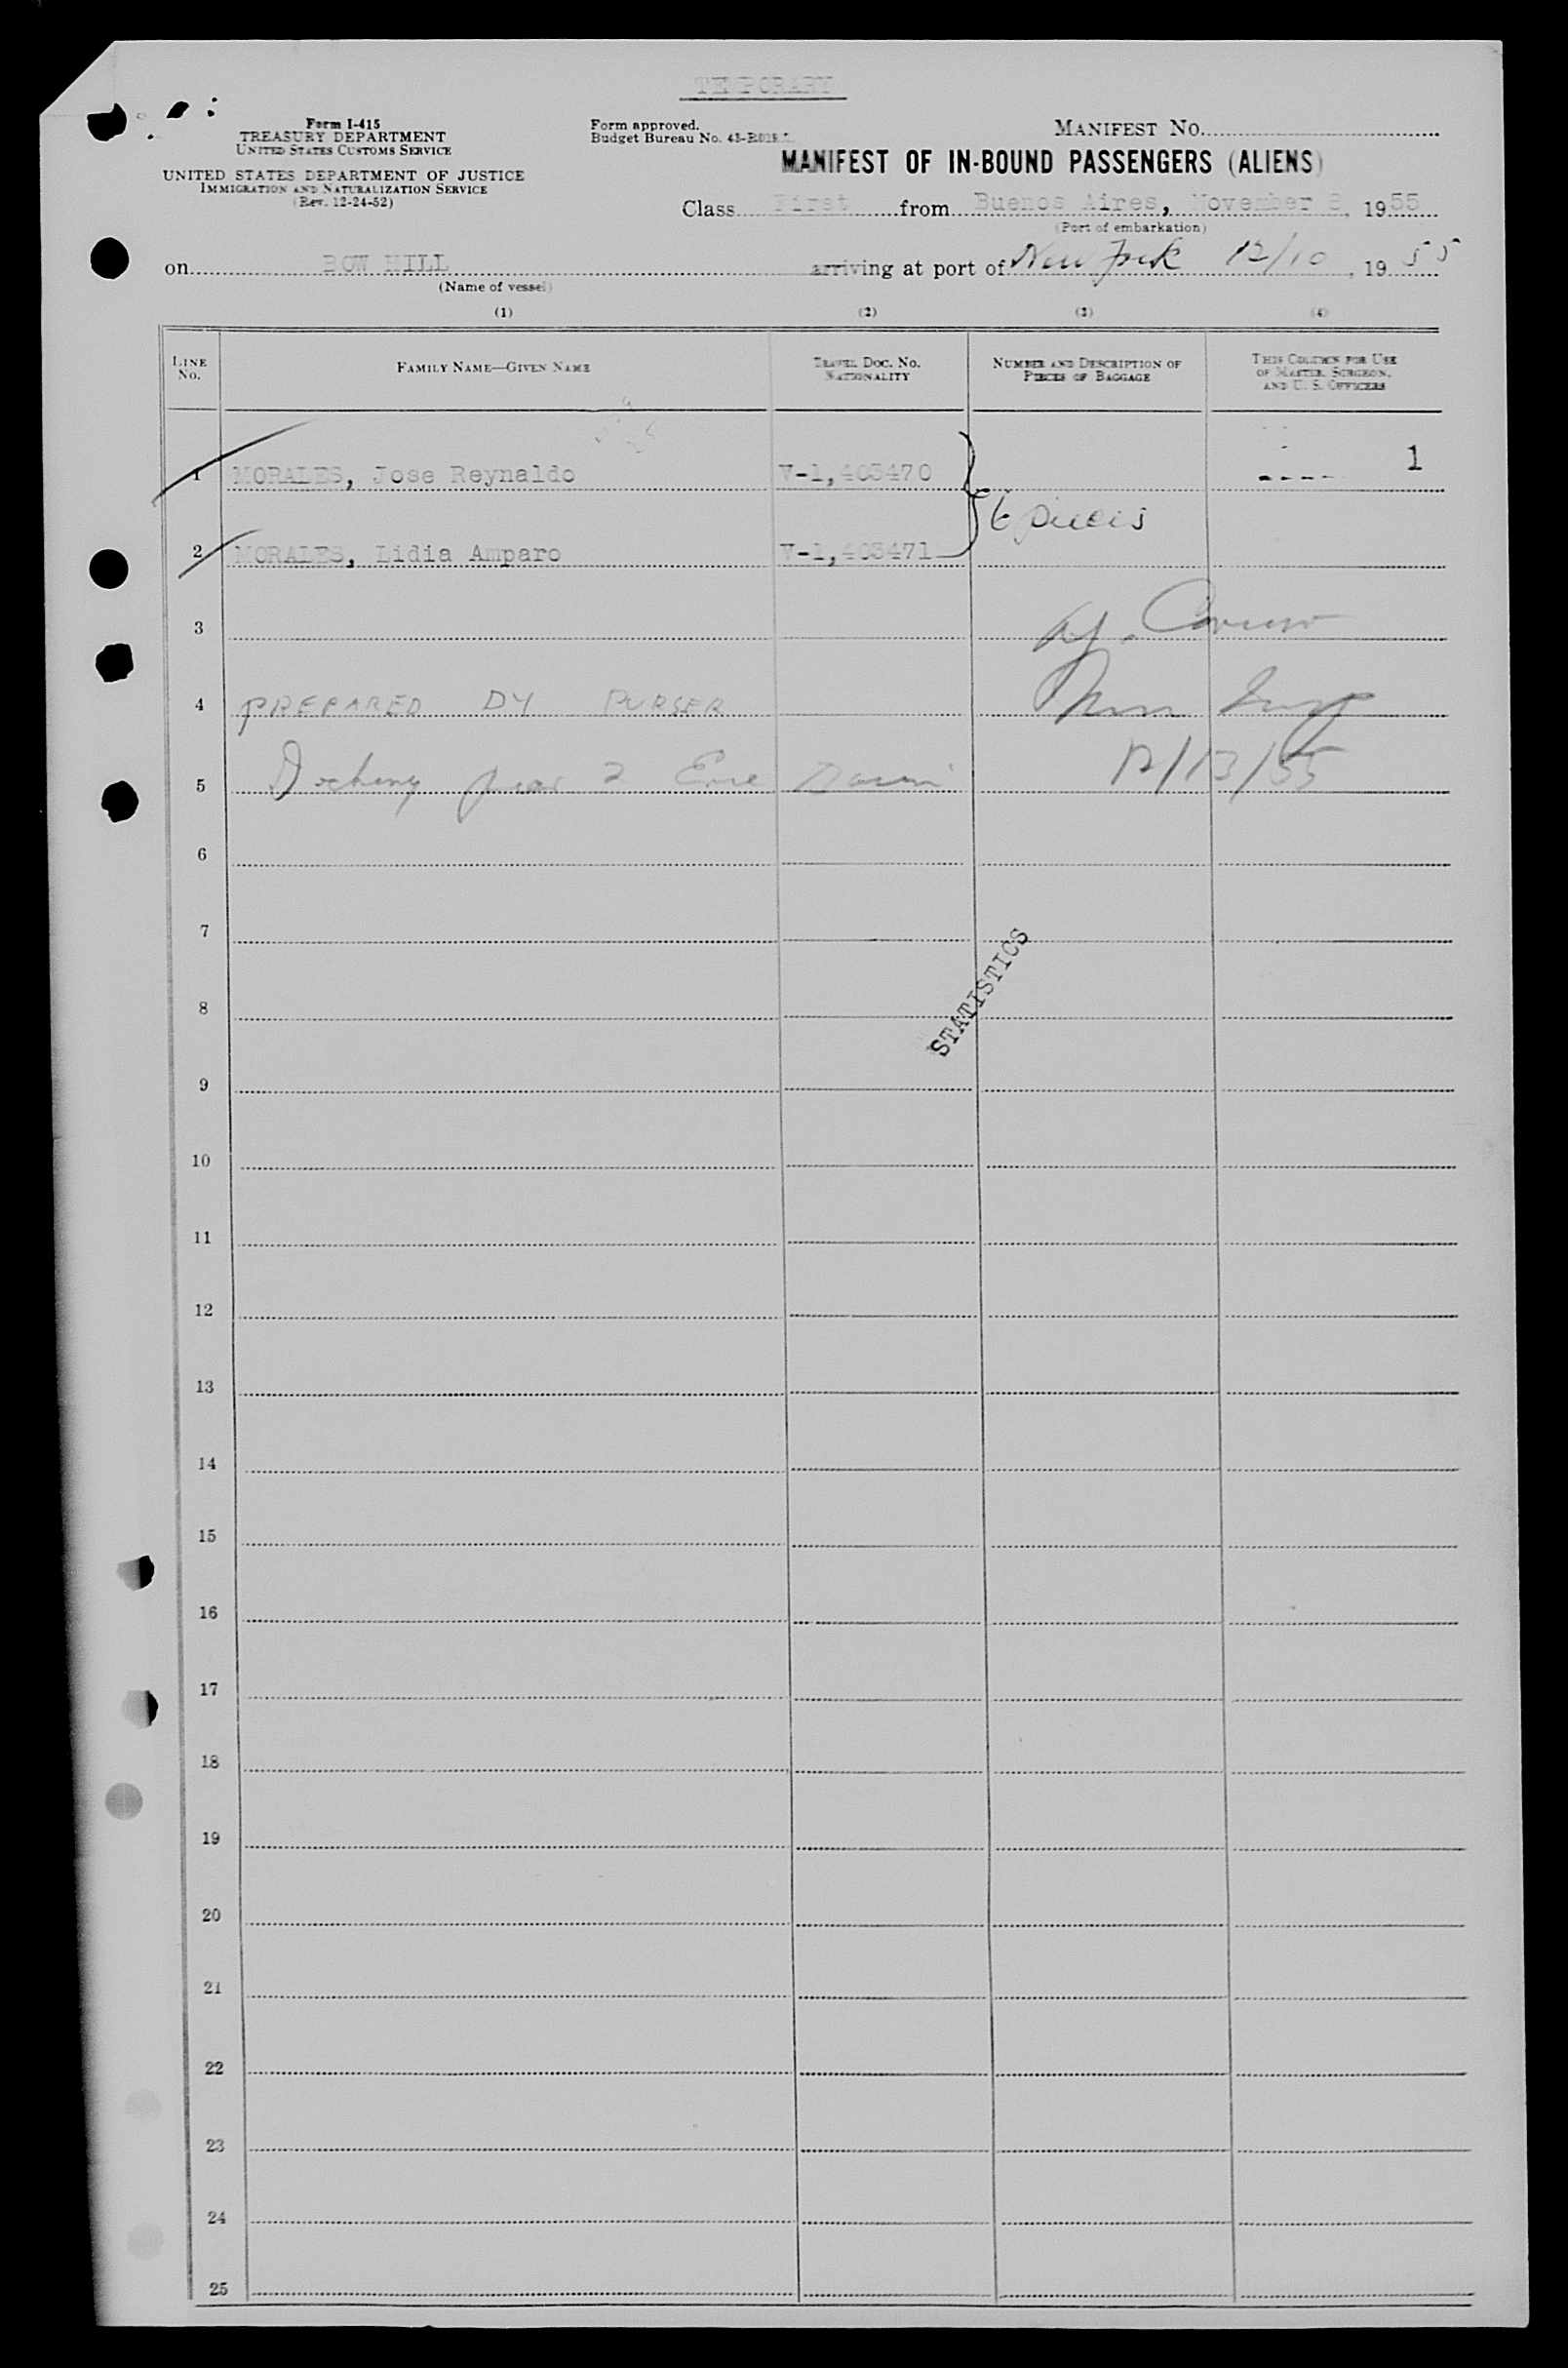 TEMPORARY
Form I-415
TREASURY DEPARTMENT
UNITED STATES CUSTOMS SERVICE
UNITED STATES DEPARTMENT OF JUSTICE
IMMIGRATION AND NATURALIZATION SERVICE
(Rev. 12-24-52)
Form approved.
Budget Bureau No.
MANIFEST NO.
MANIFEST OF IN-BOUND PASSENGERS (ALIENS)
Class First from Buenos Aires, November 8, 1955
(Port of embarkation)
on BOW HILL arriving at port of New York 12/10, 1955
(Name of vessel)
(1) (2) (3) (4)
LINE NO.
FAMILY NAME—GIVEN NAME
TRAVEL DOC. NO. NATIONALITY
NUMBER AND DESCRIPTION OF PIECES OF BAGGAGE
THIS COLUMN FOR USE OF MASTER, SURGEON, AND U. S. OFFICERS
1 MORALES, Jose Reynaldo V-1,403470 1
6 pieces
2 MORALES, Lidia Amparo V-1,403471
3
4 PREPARED BY PURSER
5 Docking pier 2 Erie Basin 12/13/55
6
7
STATISTICS
8
9
10
11
12
13
14
15
16
17
18
19
20
21
22
23
24
25